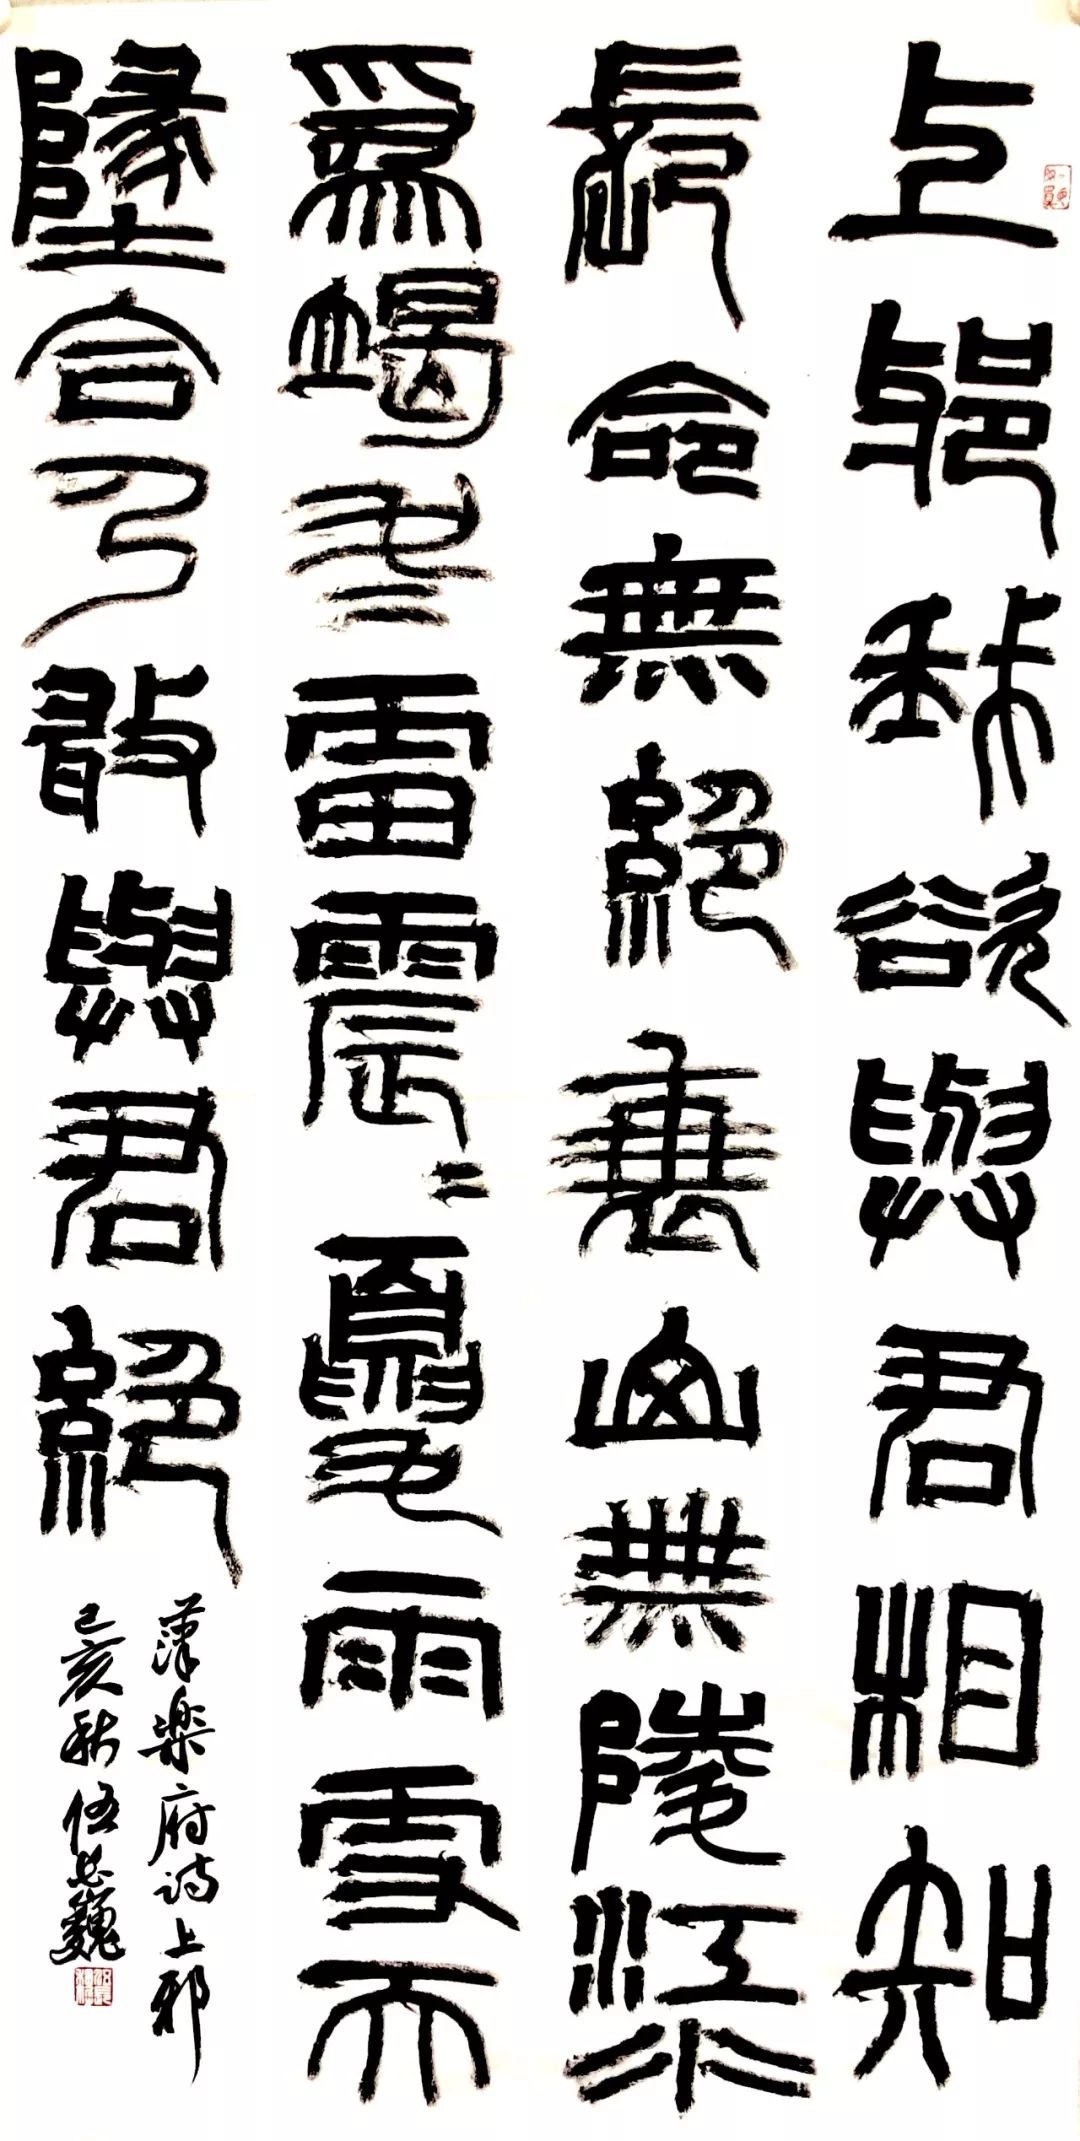 上邪我欲與君相知
長命無絕衰山無陵江水
爲竭冬雷震〻夏雨雪天
墬合乃敢與君絕
漢樂府詩上邪
己亥秋